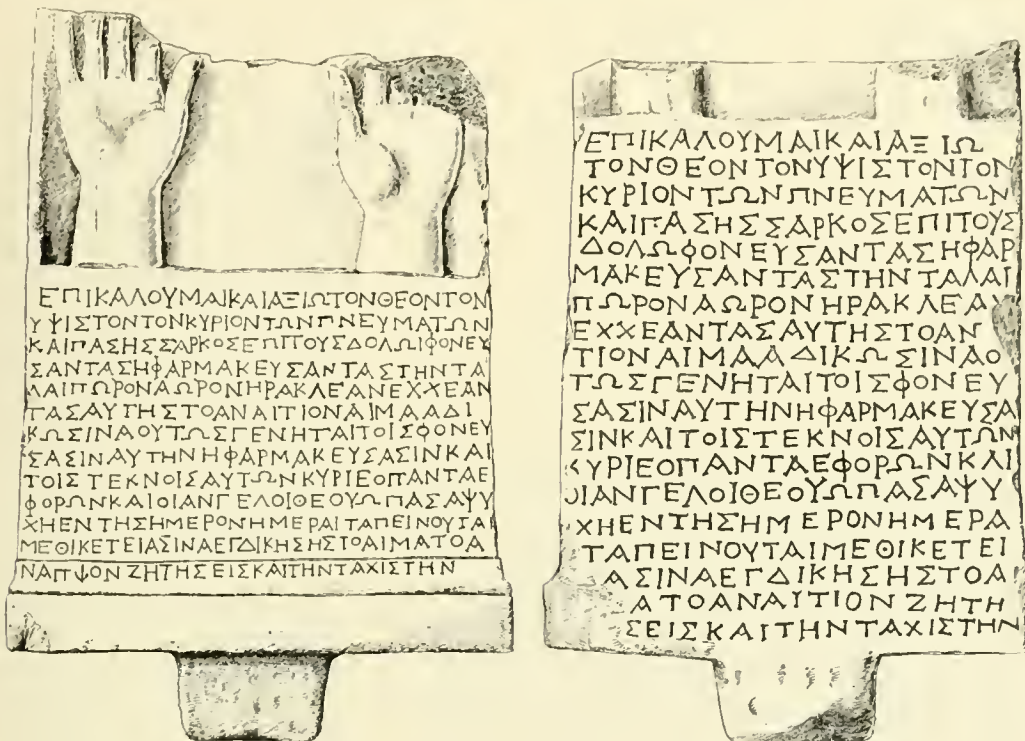 ΕΠΙΚΑΛΟΥΜΑΙΚΑΙΑΞΙΩΤΟΝΘΕΟΝΤΟΝ
ΥΨΙΣΤΟΝΤΟΝΚΥΡΙΟΝΤΩΝΠΝΕΥΜΑΤΩΝ
ΚΑΙΠΑΣΗΣΣΑΡΚΟΣΕΠΙΤΟΥΣΔΟΛΩΙΦΟΝΕΥ
ΣΑΝΤΑΣΗΦΑΡΜΑΚΕΥΣΑΝΤΑΣΤΗΝΤΑ
ΛΑΙΠΩΡΟΝΑΩΡΟΝΗΡΑΚΛΕΑΝΕΧΧΕΑΝ
ΤΑΣΑΥΤΗΣΤΟΑΝΑΙΤΙΟΝΑΙΜΑΑΔΙ
ΚΩΣΙΝΑΟΥΤΩΣΓΕΝΗΤΑΙΤΟΙΣΦΟΝΕΥ
ΣΑΣΙΝΑΥΤΗΝΗΦΑΡΜΑΚΕΥΣΑΣΙΝΚΑΙ
ΤΟΙΣΤΕΚΝΟΙΣΑΥΤΩΝΚΥΡΙΕΟΠΑΝΤΑΕ
ΦΟΡΩΝΚΑΙΟΙΑΝΓΕΛΟΙΘΕΟΥΩΠΑΣΑΨΥ
ΧΗΕΝΤΗΣΗΜΕΡΟΝΗΜΕΡΑΙΤΑΠΕΙΝΟΥΤΑΙ
ΜΕΘΙΚΕΤΕΙΑΣΙΝΑΕΓΔΙΚΗΣΗΣΤΟΑΙΜΑΤΟΑ
ΝΑΠΨΟΝΖΗΤΗΣΕΙΣΚΑΙΤΗΝΤΑΧΙΣΤΗΝ
ΕΠΙΚΑΛΟΥΜΑΙΚΑΙΑΞΙΩ
ΤΟΝΘΕΟΝΤΟΝΥΨΙΣΤΟΝΤΟΝ
ΚΥΡΙΟΝΤΩΝΠΝΕΥΜΑΤΩΝ
ΚΑΙΠΑΣΗΣΣΑΡΚΟΣΕΠΙΤΟΥΣ
ΔΟΛΩΦΟΝΕΥΣΑΝΤΑΣΗΦΑΡ
ΜΑΚΕΥΣΑΝΤΑΣΤΗΝΤΑΛΑΙ
ΠΩΡΟΝΑΩΡΟΝΗΡΑΚΛΕΑΝ
ΕΧΧΕΑΝΤΑΣΑΥΤΗΣΤΟΑΝ
ΤΙΟΝΑΙΜΑΑΔΙΚΩΣΙΝΑΟ
ΤΩΣΓΕΝΗΤΑΙΤΟΙΣΦΟΝΕΥ
ΣΑΣΙΝΑΥΤΗΝΗΦΑΡΜΑΚΕΥΣΑ
ΣΙΝΚΑΙΤΟΙΣΤΕΚΝΟΙΣΑΥΤΩΝ
ΚΥΡΙΕΟΠΑΝΤΑΕΦΟΡΩΝΚΑΙ
ΟΙΑΝΓΕΛΟΙΘΕΟΥΩΠΑΣΑΨΥ
ΧΗΕΝΤΗΣΗΜΕΡΟΝΗΜΕΡΑ
ΤΑΠΕΙΝΟΥΤΑΙΜΕΘΙΚΕΤΕΙ
ΑΣΙΝΑΕΓΔΙΚΗΣΗΣΤΟΑ
ΑΤΟΑΝΑΙΤΙΟΝΖΗΤΗ
ΣΕΙΣΚΑΙΤΗΝΤΑΧΙΣΤΗΝ